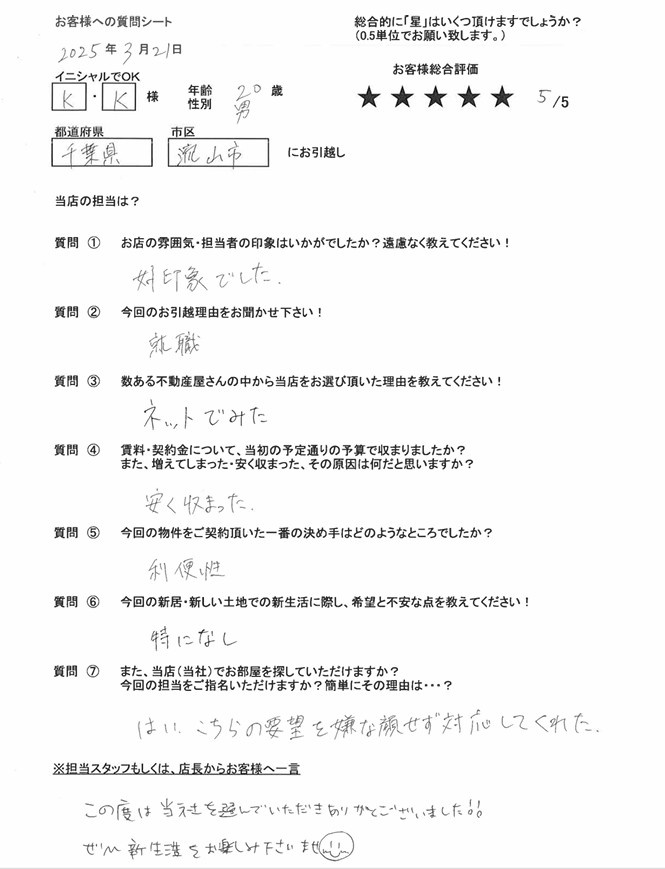 お客様への質問シート
総合的に「星」はいくつ頂けますでしょうか？
（0.5単位でお願い致します。）
2025年3月21日
イニシャルでOK
K・K様
年齢 20歳
性別 男
お客様総合評価
★★★★★ 5/5
都道府県 市区
千葉県 流山市 にお引越し
当店の担当は？
質問 ① お店の雰囲気・担当者の印象はいかがでしたか？遠慮なく教えてください！
好印象でした.
質問 ② 今回のお引越理由をお聞かせ下さい！
就職
質問 ③ 数ある不動産屋さんの中から当店をお選び頂いた理由を教えてください！
ネットでみた
質問 ④ 賃料・契約金について、当初の予定通りの予算で収まりましたか？
また、増えてしまった・安く収まった、その原因は何だと思いますか？
安く収まった.
質問 ⑤ 今回の物件をご契約頂いた一番の決め手はどのようなところでしたか？
利便性
質問 ⑥ 今回の新居・新しい土地での新生活に際し、希望と不安な点を教えてください！
特になし
質問 ⑦ また、当店（当社）でお部屋を探していただけますか？
今回の担当をご指名いただけますか？簡単にその理由は・・・？
はい. こちらの要望を嫌な顔せず対応してくれた.
※担当スタッフもしくは、店長からお客様へ一言
この度は当社を選んでいただきありがとうございました!!
ぜひ新生活をお楽しみ下さいませ